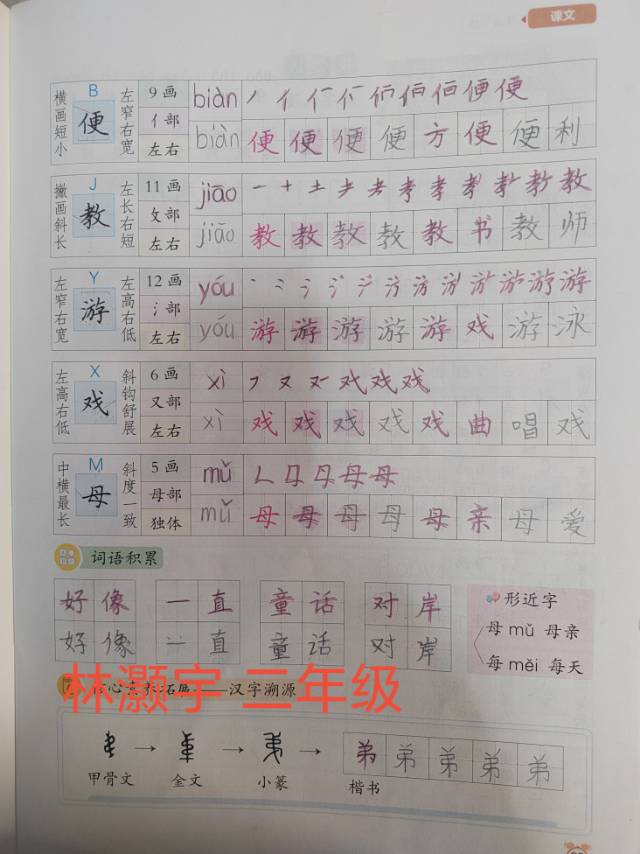 课文
横画短小 B 便 左窄右宽 9画 亻部 左右 biàn
biàn 便 便 便 便 方 便 便 利
撇画斜长 J 教 左长右短 11画 攵部 左右 jiāo
jiāo 教 教 教 教 教 书 教 师
左窄右宽 Y 游 左高右低 12画 氵部 左右 yóu
yóu 游 游 游 游 游 戏 游 泳
左高右低 X 戏 斜钩舒展 6画 又部 左右 xì
xì 戏 戏 戏 戏 戏 曲 唱 戏
中横最长 M 母 斜度一致 5画 母部 独体 mǔ
mǔ 母 母 母 母 母 亲 母 爱
词语积累
好像 一直 童话 对岸
好像 一直 童话 对岸
形近字
母 mǔ 母亲
每 měi 每天
林灏宇 二年级
汉字溯源
弟 弟 弟 弟 弟
甲骨文 金文 小篆 楷书